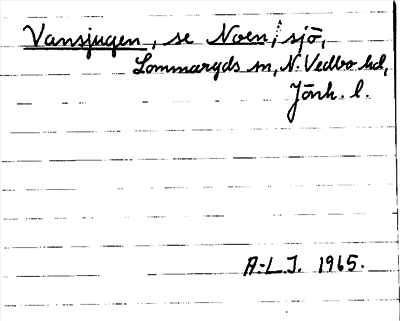 Vansjugen, se Noen, sjö,
Lommaryds sn, N. Vedbo hd,
Jönk. l.
A-L J. 1965.